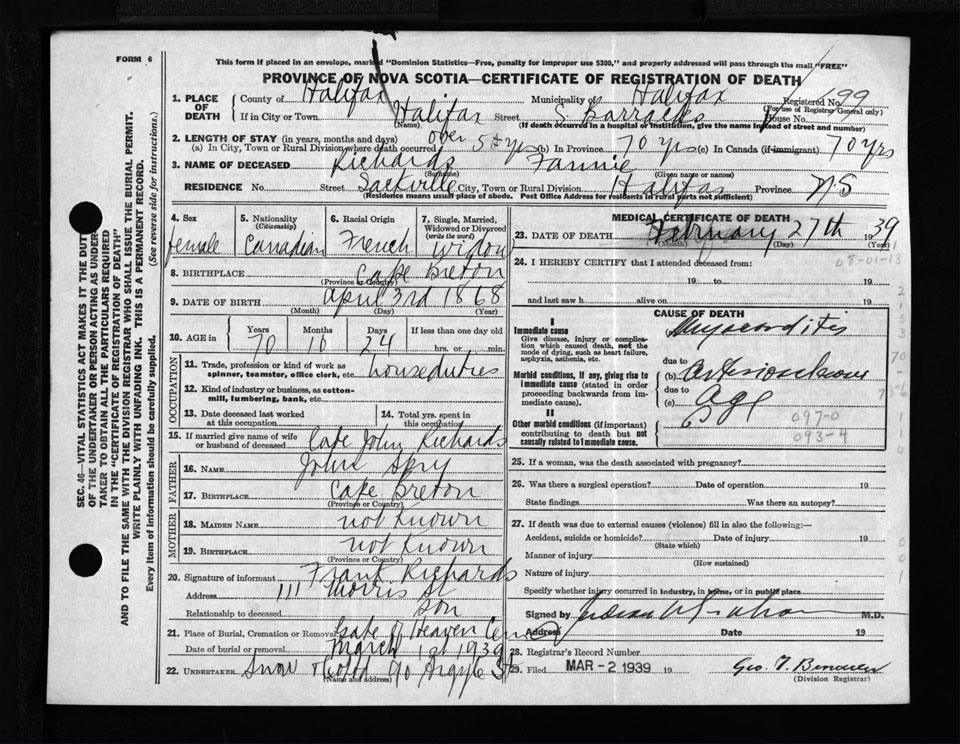 FORM 6
This form if placed in an envelope, marked "Dominion Statistics—Free, penalty for improper use $300," and properly addressed will pass through the mail "FREE"
PROVINCE OF NOVA SCOTIA—CERTIFICATE OF REGISTRATION OF DEATH
1. PLACE OF DEATH County of Halifax Municipality of Halifax Registered No. 199
(For use of Registrar General only)
If in City or Town Halifax Street S. Barracks House No.
(Name) (If death occurred in a hospital or institution, give the name instead of street and number)
2. LENGTH OF STAY (in years, months and days)
(a) In City, Town or Rural Division where death occurred over 5 yrs (b) In Province 70 yrs (c) In Canada (if immigrant) 70 yrs
3. NAME OF DECEASED Richards Fannie
(Surname) (Given name or names)
RESIDENCE No. Street Sackville City, Town or Rural Division Halifax Province N.S
(Residence means usual place of abode. Post Office Address for residents in rural parts not sufficient)
4. Sex female
5. Nationality (Citizenship) Canadian
6. Racial Origin French
7. Single, Married, Widowed or Divorced (write the word) Widow
8. BIRTHPLACE Cape Breton
(Province or Country)
9. DATE OF BIRTH April 3rd 1868
(Month) (Day) (Year)
10. AGE in Years 70 Months 10 Days 24 If less than one day old hrs. or min.
OCCUPATION
11. Trade, profession or kind of work as spinner, teamster, office clerk, etc. houseduties
12. Kind of industry or business, as cotton-mill, lumbering, bank, etc.
13. Date deceased last worked at this occupation
14. Total yrs. spent in this occupation
15. If married give name of wife or husband of deceased Late John Richards
FATHER
16. NAME John Spry
17. BIRTHPLACE Cape Breton
(Province or Country)
MOTHER
18. MAIDEN NAME not Known
19. BIRTHPLACE not Known
(Province or Country)
20. Signature of informant Frank Richards
Address 111 Morris St
Relationship to deceased Son
21. Place of Burial, Cremation or Removal Gate of Heaven Cem
Date of burial or removal March 1st 1939
22. UNDERTAKER Snow & Co Ltd 90 Argyle St
(Name and address)
MEDICAL CERTIFICATE OF DEATH
23. DATE OF DEATH February 27th 1939
(Month) (Day) (Year)
24. I HEREBY CERTIFY that I attended deceased from:
08-01-13
19 to 19
and last saw h alive on 19
CAUSE OF DEATH
I
Immediate cause
Give disease, injury or complication which caused death, not the mode of dying, such as heart failure, asphyxia, asthenia, etc.
(a) Myocarditis
due to
Morbid conditions, if any, giving rise to immediate cause (stated in order proceeding backwards from immediate cause)
(b)
due to
(c) Age
II
Other morbid conditions (if important) contributing to death but not causally related to immediate cause.
097-0
093-4
25. If a woman, was the death associated with pregnancy?
26. Was there a surgical operation? Date of operation 19
State findings Was there an autopsy?
27. If death was due to external causes (violence) fill in also the following:—
Accident, suicide or homicide? Date of injury 19
(State which)
Manner of injury
(How sustained)
Nature of injury
Specify whether injury occurred in industry, in home, or in public place
Signed by M.D.
Address Date 19
28. Registrar's Record Number
29. Filed MAR - 2 1939 19
(Division Registrar)
SEC. 46—VITAL STATISTICS ACT MAKES IT THE DUTY
OF THE UNDERTAKER OR PERSON ACTING AS UNDER-
TAKER TO OBTAIN ALL THE PARTICULARS REQUIRED
IN THE "CERTIFICATE OF REGISTRATION OF DEATH"
AND TO FILE THE SAME WITH THE DIVISION REGISTRAR WHO SHALL ISSUE THE BURIAL PERMIT.
WRITE PLAINLY WITH UNFADING INK. THIS IS A PERMANENT RECORD.
Every item of information should be carefully supplied. (See reverse side for instructions.)